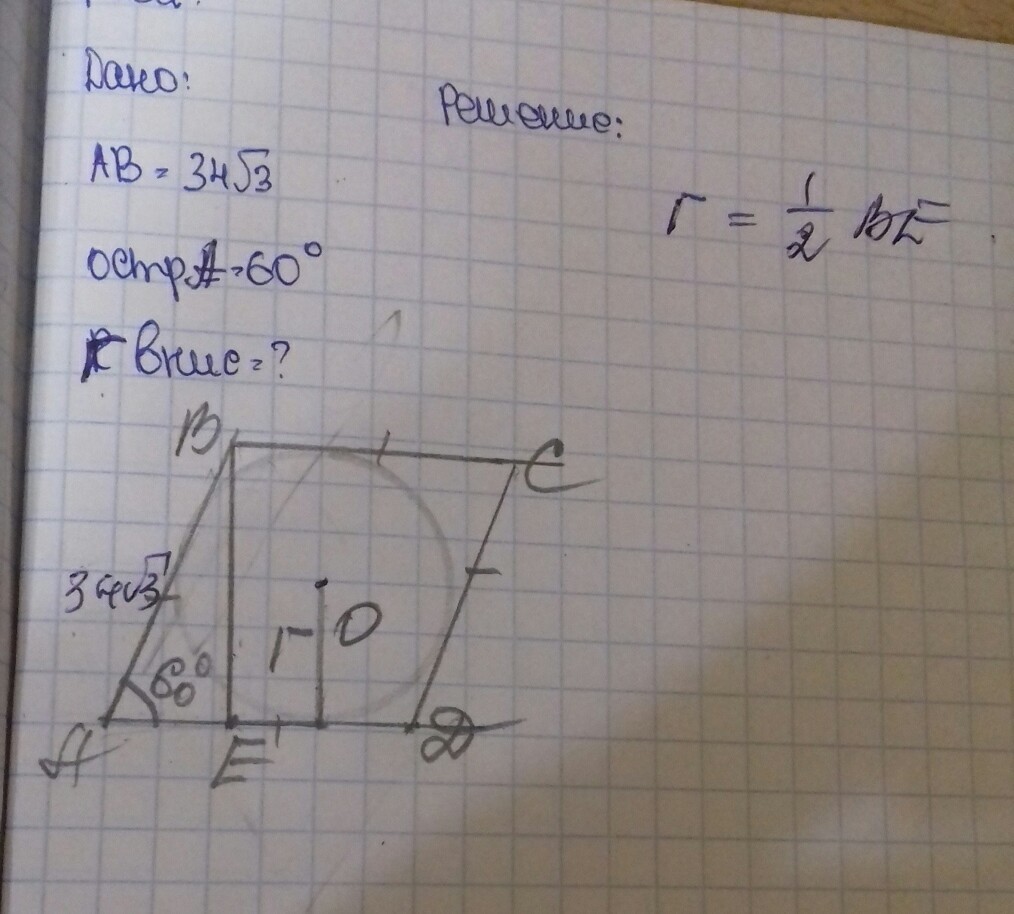 Дано:
Решение:
AB = 34√3
r = 1/2 BE
остр A = 60°
r впис = ?
B
C
34√3
r
O
60°
A
E
D